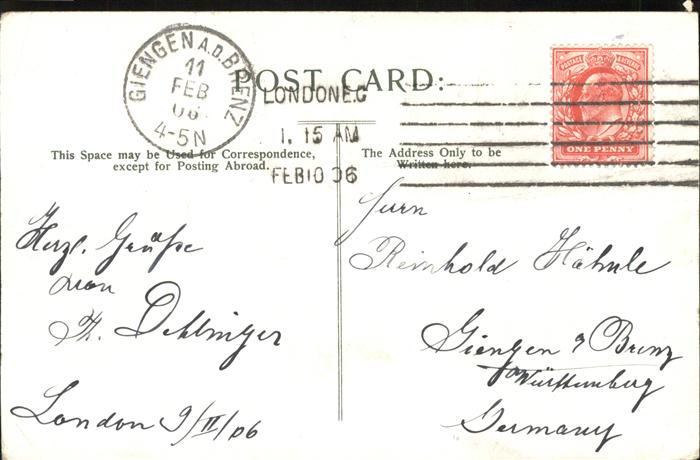 GIENGEN A.D. BRENZ
11
FEB
06
4-5N
POST CARD:
LONDON E.C
1. 15 AM
FEB 10 06
POSTAGE & REVENUE
ONE PENNY
This Space may be Used for Correspondence,
except for Posting Abroad.
The Address Only to be
Written here.
Herzl. Grüße
von
Dehlinger
London 9/II/06
Herrn
Reinhold Hähnle
Giengen a Brenz
Württemberg
Germany